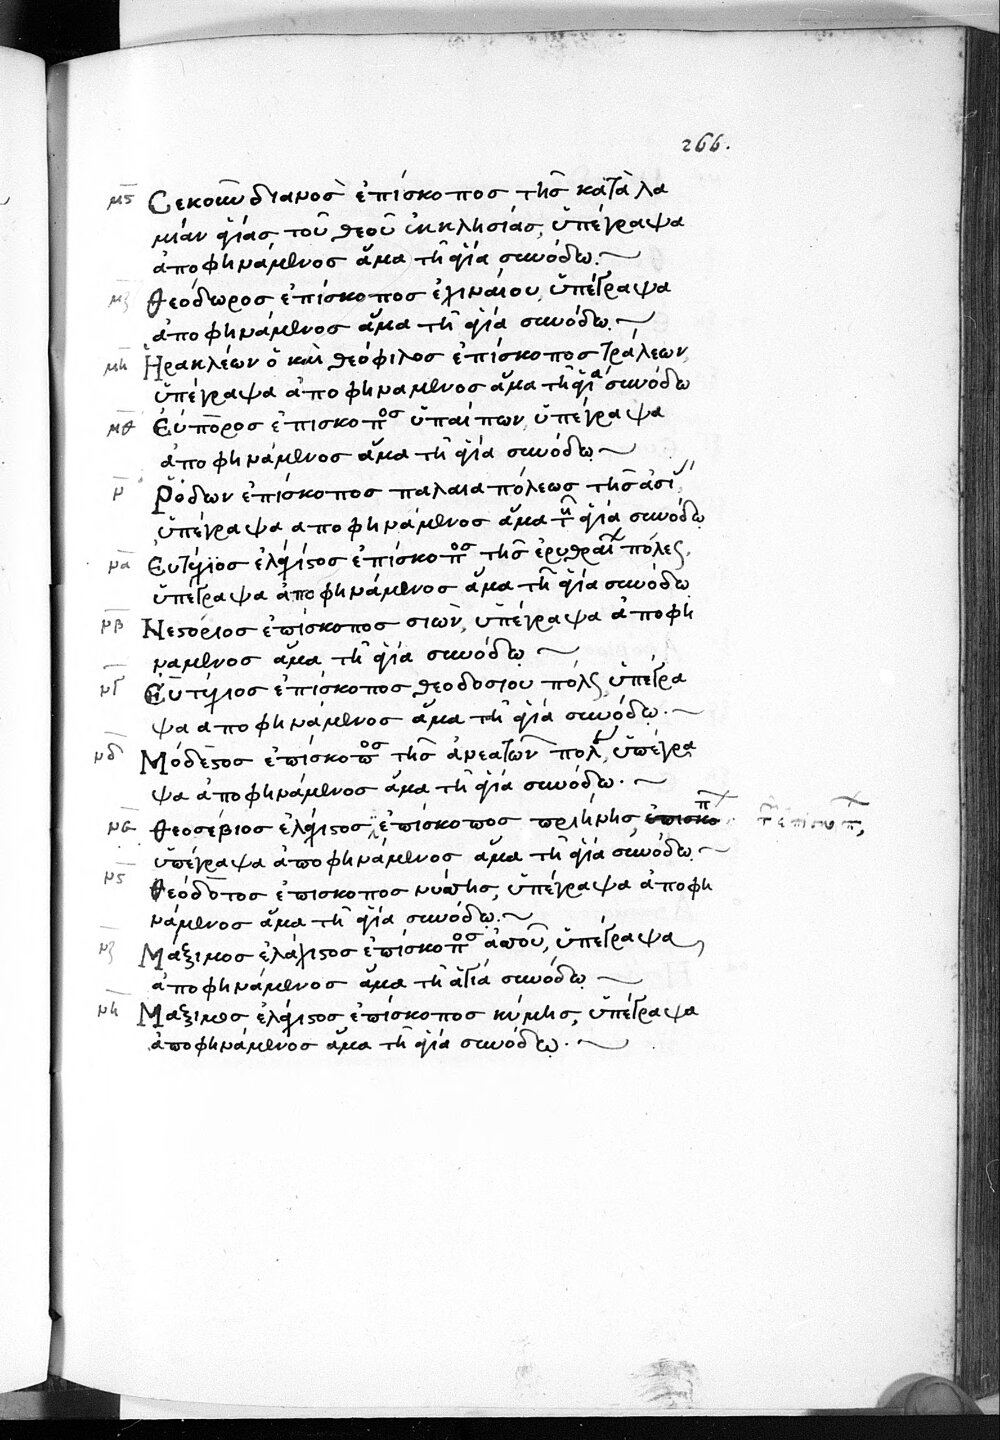 266.
μς Σεκουνδιανοσ ἐπίσκοπος τῆς κατὰ λα
μίαν ἁγίας τοῦ θεοῦ ἐκκλησίας, ὑπέγραψα
ἀποφηνάμενος ἅμα τῆ ἁγία συνόδω.
μζ Θεόδωρος ἐπίσκοπος ἐγιναίου, ὑπέγραψα
ἀποφηνάμενος ἅμα τῆ ἁγία συνόδω.
μη Ἡρακλέων ὁ καὶ θεόφιλος ἐπίσκοπος τράλεων,
ὑπέγραψα ἀποφηναμενος ἅμα τῆ ἁγία συνόδω
μθ Εὔπορος ἐπισκοπος ὑπαίπων, ὑπέγραψα
ἀποφηνάμενος ἅμα τῆ ἁγία συνόδω
ν Ῥόδων ἐπίσκοπος παλαιαπόλεως τῆς ἀσί,
ὑπέγραψα αποφηνάμενος ἅμα τῆ ἁγία συνόδω
να Εὐτύχιος ἐλάχιστος ἐπίσκοπος τῆς ἐρυθραί πόλεως,
ὑπέγραψα ἀποφηνάμενος ἅμα τῆ ἁγία συνόδω
νβ Νεστόριος ἐπίσκοπος σιων, ὑπέγραψα ἀποφη
ναμενος ἅμα τῆ ἁγία συνόδω
νγ Εὐτύχιος ἐπίσκοπος θεοδοσιου πόλεως, ὑπέγρα
ψα αποφηνάμενος ἅμα τῆ ἁγία συνόδω.
νδ Μόδεστος ἐπίσκοπος τῆς ἀνεατῶν πολ, ὑπέγρα
ψα ἀποφηνάμενος ἅμα τῆ ἁγία συνόδω.
νε Θεοσέβιος ἐλάχιστος ἐπίσκοπος πριήνης, ἐπισκοπ
ὑπέγραψα ἀποφηνάμενος ἅμα τῆ ἁγία συνόδω
νς Θεόδοτος ἐπισκοπος νύσης, ὑπέγραψα ἀποφη
νάμενος ἅμα τῆ ἁγία συνόδω.
νζ Μάξιμος ἐλάχιστος ἐπίσκοπος ἀσοῦ, ὑπέγραψα,
ἀποφηνάμενος ἅμα τῆ ἁγία συνόδω
νη Μαξιμος ἐλάχιστος ἐπίσκοπος κύμης, ὑπέγραψα
ἀποφηνάμενος ἅμα τῆ ἁγία συνόδω.